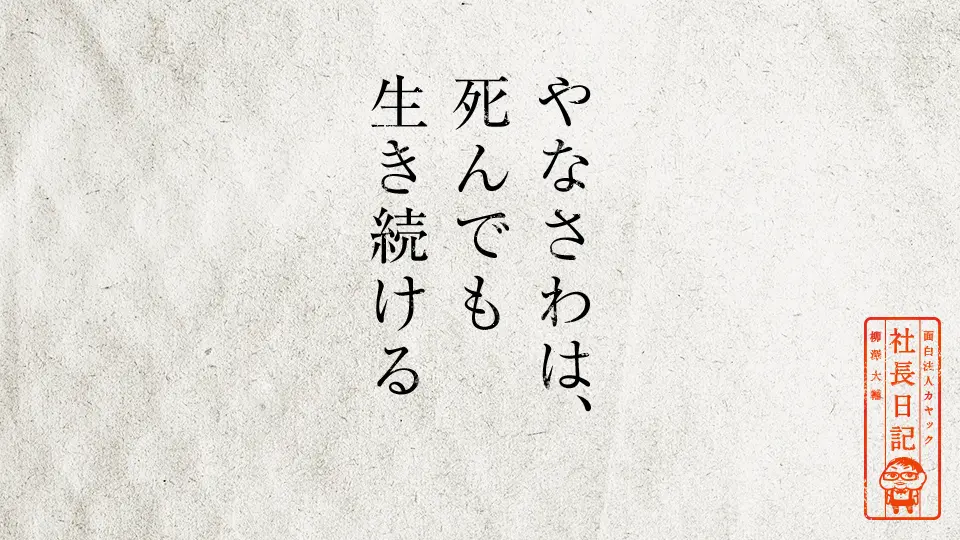 やなさわは、
死んでも
生き続ける
面白法人カヤック
社長日記
柳澤大輔